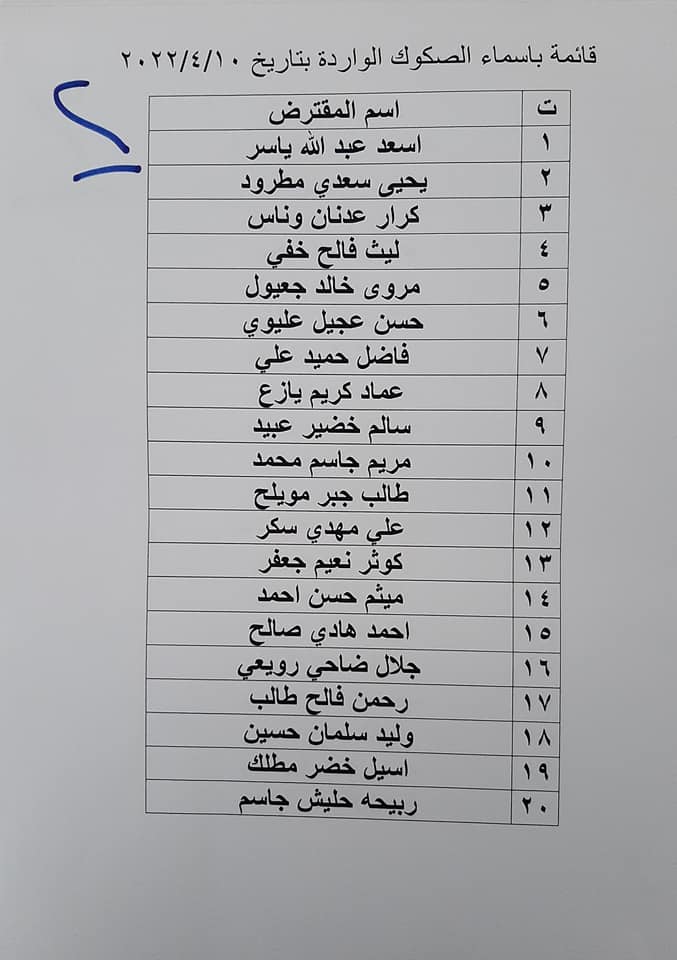 قائمة باسماء الصكوك الواردة بتاريخ ٢٠٢٢/٤/١٠
ت اسم المقترض
١ اسعد عبد الله ياسر
٢ يحيى سعدي مطرود
٣ كرار عدنان وناس
٤ ليث فالح خفي
٥ مروى خالد جعيول
٦ حسن عجيل عليوي
٧ فاضل حميد علي
٨ عماد كريم يازع
٩ سالم خضير عبيد
١٠ مريم جاسم محمد
١١ طالب جبر مويلح
١٢ علي مهدي سكر
١٣ كوثر نعيم جعفر
١٤ ميثم حسن احمد
١٥ احمد هادي صالح
١٦ جلال ضاحي رويعي
١٧ رحمن فالح طالب
١٨ وليد سلمان حسين
١٩ اسيل خضر مطلك
٢٠ ربيحه حليش جاسم